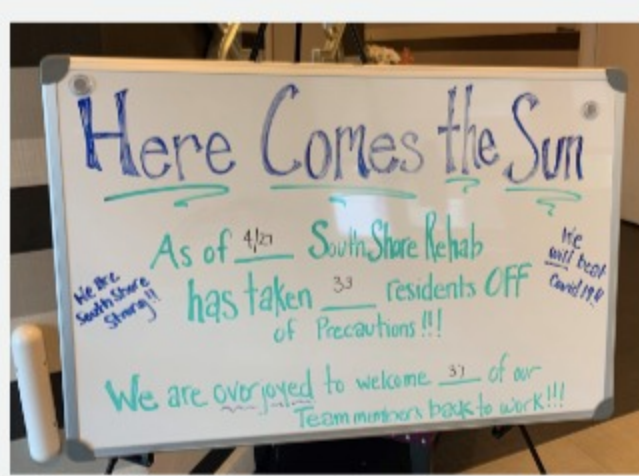 Here Comes the Sun
As of 4/27 South Shore Rehab
has taken 33 residents OFF
of Precautions!!!
We are
South Shore
Strong!!
We
will beat
Covid19!!
We are overjoyed to welcome 37 of our
Team members back to work!!!